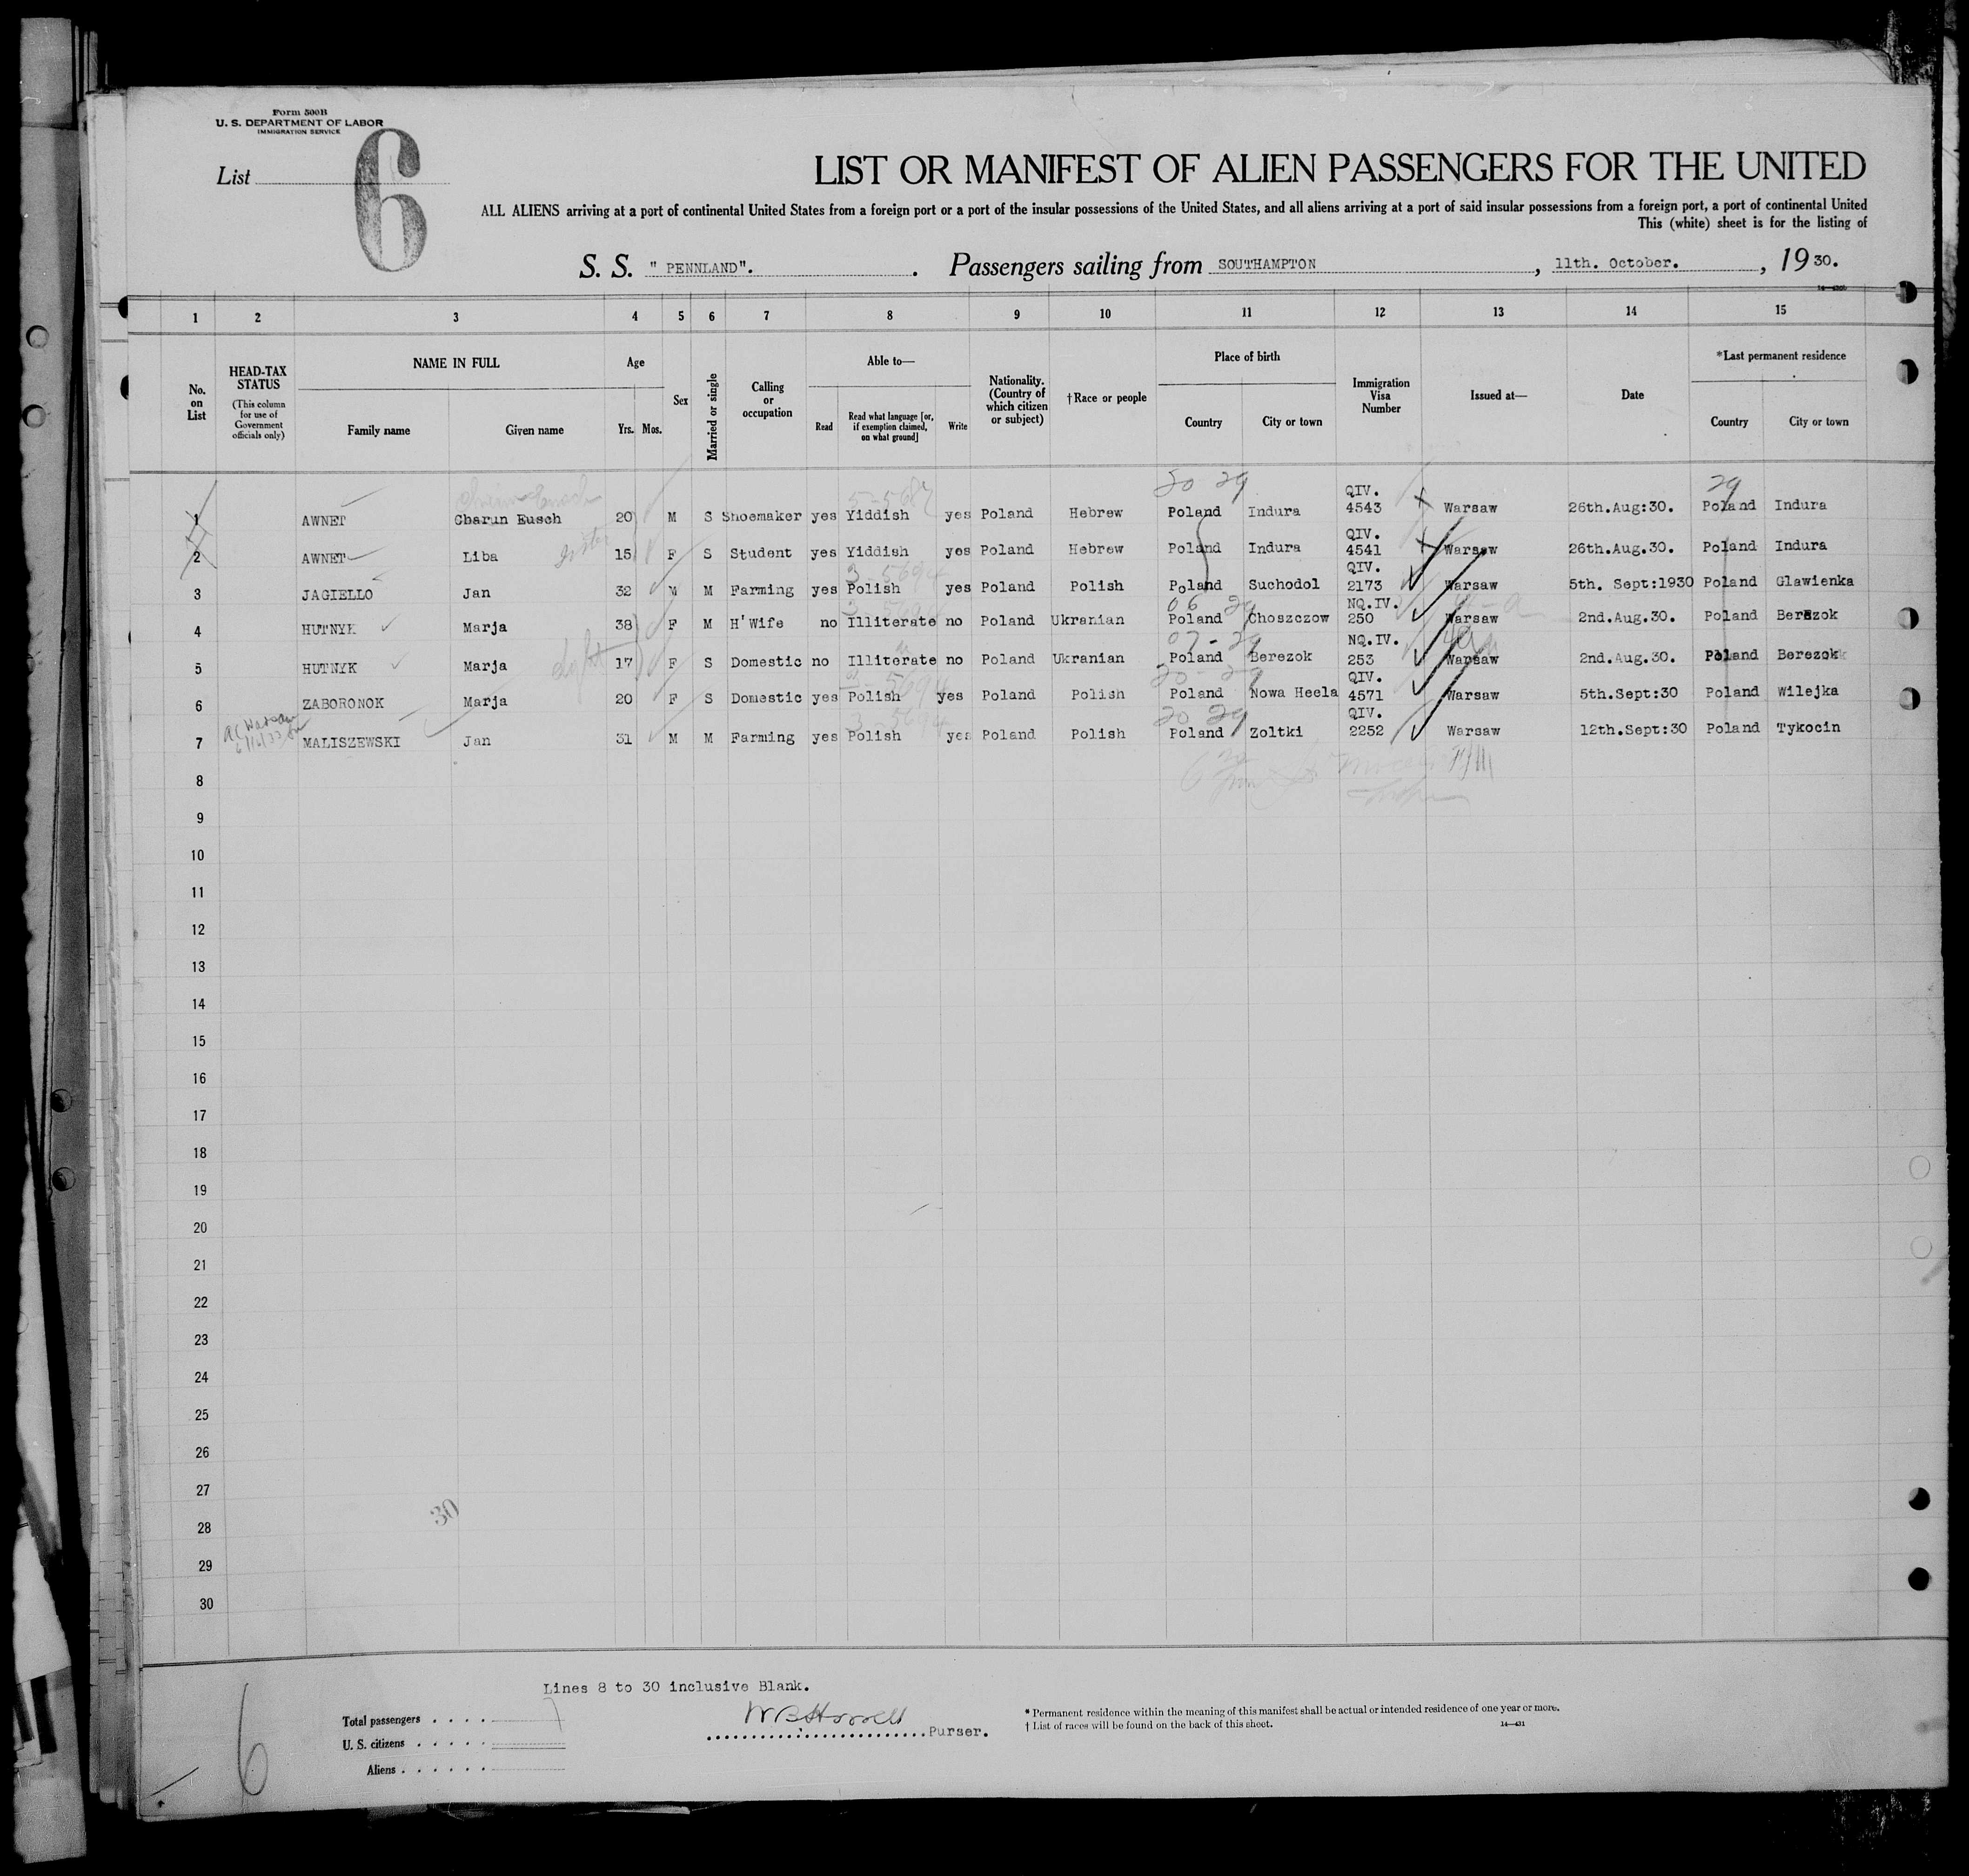 Form 500B
U. S. DEPARTMENT OF LABOR
IMMIGRATION SERVICE
List 6
LIST OR MANIFEST OF ALIEN PASSENGERS FOR THE UNITED
ALL ALIENS arriving at a port of continental United States from a foreign port or a port of the insular possessions of the United States, and all aliens arriving at a port of said insular possessions from a foreign port, a port of continental United
This (white) sheet is for the listing of
S. S. " PENNLAND". . Passengers sailing from SOUTHAMPTON , 11th. October. , 19 30.
1 2 3 4 5 6 7 8 9 10 11 12 13 14 15
No. on List
HEAD-TAX STATUS (This column for use of Government officials only)
NAME IN FULL
Family name Given name
Age
Yrs. Mos.
Sex
Married or single
Calling or occupation
Able to—
Read
Read what language [or, if exemption claimed, on what ground]
Write
Nationality. (Country of which citizen or subject)
†Race or people
Place of birth
Country City or town
Immigration Visa Number
Issued at—
Date
*Last permanent residence
Country City or town
20 29 29
5-5687
1 AWNET Charun Eusch 20 M S Shoemaker yes Yiddish yes Poland Hebrew Poland Indura QIV. 4543 Warsaw 26th.Aug:30. Poland Indura
2 AWNET Liba sister 15 F S Student yes Yiddish yes Poland Hebrew Poland Indura QIV. 4541 Warsaw 26th.Aug.30. Poland Indura
3-5694
3 JAGIELLO Jan 32 M M Farming yes Polish yes Poland Polish Poland Suchodol QIV. 2173 Warsaw 5th. Sept:1930 Poland Glawienka
06 29
4 HUTNYK Marja 38 F M H'Wife no Illiterate no Poland Ukranian Poland Choszczow NQ.IV. 250 Warsaw 2nd.Aug.30. Poland Berezok
07-29
5 HUTNYK Marja 17 F S Domestic no Illiterate no Poland Ukranian Poland Berezok NQ.IV. 253 Warsaw 2nd.Aug.30. Poland Berezok
20-29
6 ZABORONOK Marja 20 F S Domestic yes Polish yes Poland Polish Poland Nowa Heela QIV. 4571 Warsaw 5th.Sept:30 Poland Wilejka
3-5694 20 29
7 MALISZEWSKI Jan 31 M M Farming yes Polish yes Poland Polish Poland Zoltki QIV. 2252 Warsaw 12th.Sept:30 Poland Tykocin
8
9
10
11
12
13
14
15
16
17
18
19
20
21
22
23
24
25
26
27
28
29
30
30
Lines 8 to 30 inclusive Blank.
6
Total passengers . . . . 7
U. S. citizens . . . . .
Aliens . . . . . .
Purser.
* Permanent residence within the meaning of this manifest shall be actual or intended residence of one year or more.
† List of races will be found on the back of this sheet.
14—431